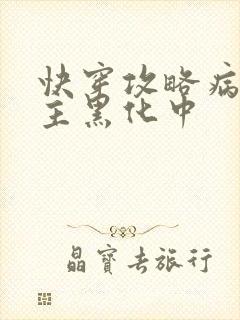 快穿攻略病
主黑化中
晶寶去旅行